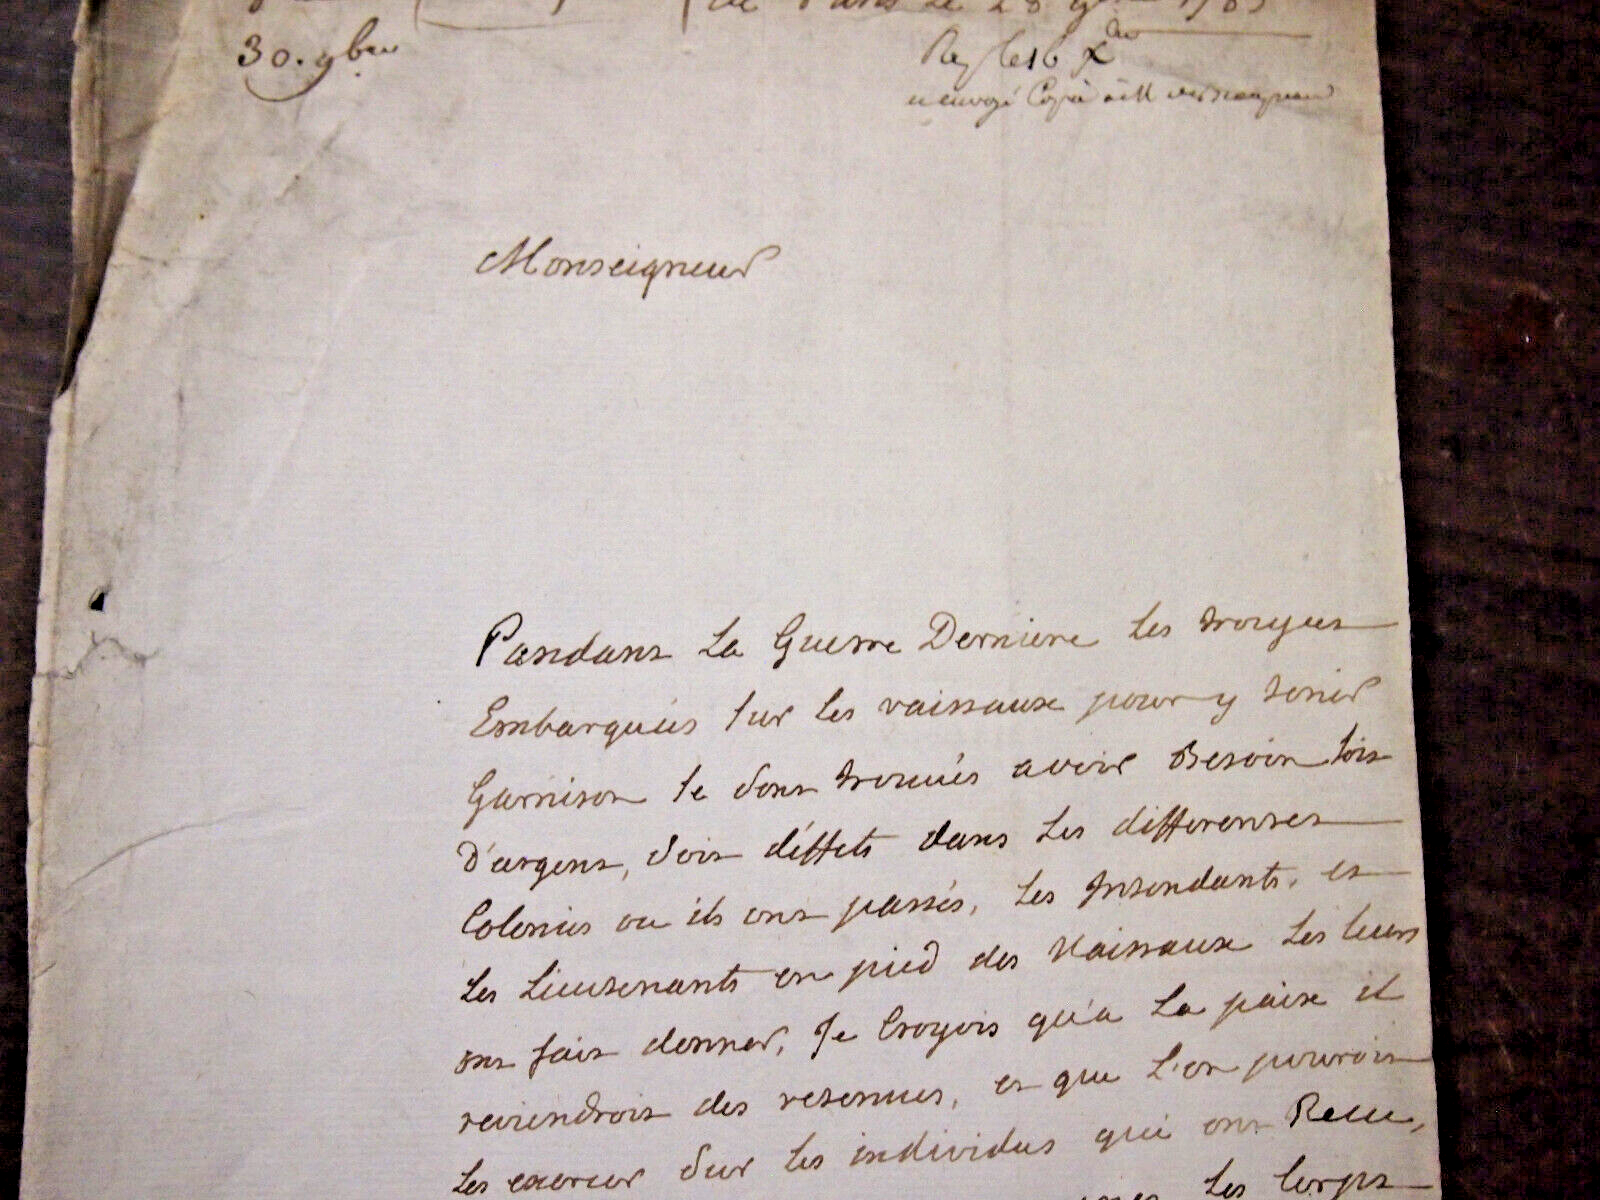 de Paris Le 28 9bre 178
30. 9bre
Rep le 16 Xbre
envoyé Copie à M
Monseigneur
Pandant La Guerre Derniere Les trouppes
Embarquées sur les vaissaux pour y tenir
Garnison se sont trouvés avoir Besoin soit
D'argent, soit d'éffets dans Les differentes
Colonies ou ils ont passés, Les Intendants, et
Les Lieutenants en pied des Vaissaux Les leurs
ont fait donner, Je Croyois qu'a La paix il
reviendroit des retenues, et que L'on pouroit
Les exercer sur les individus qui ont Recu,
Les Corps